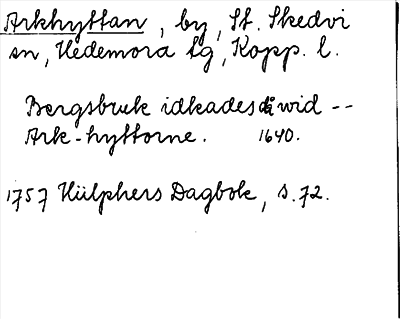 Arkhyttan, by, St. Skedvi
sn, Hedemora tg, Kopp. l.
Bergsbruk idkades då wid --
Ark-hyttorne. 1640.
1757 Hülphers Dagbok, s. 72.